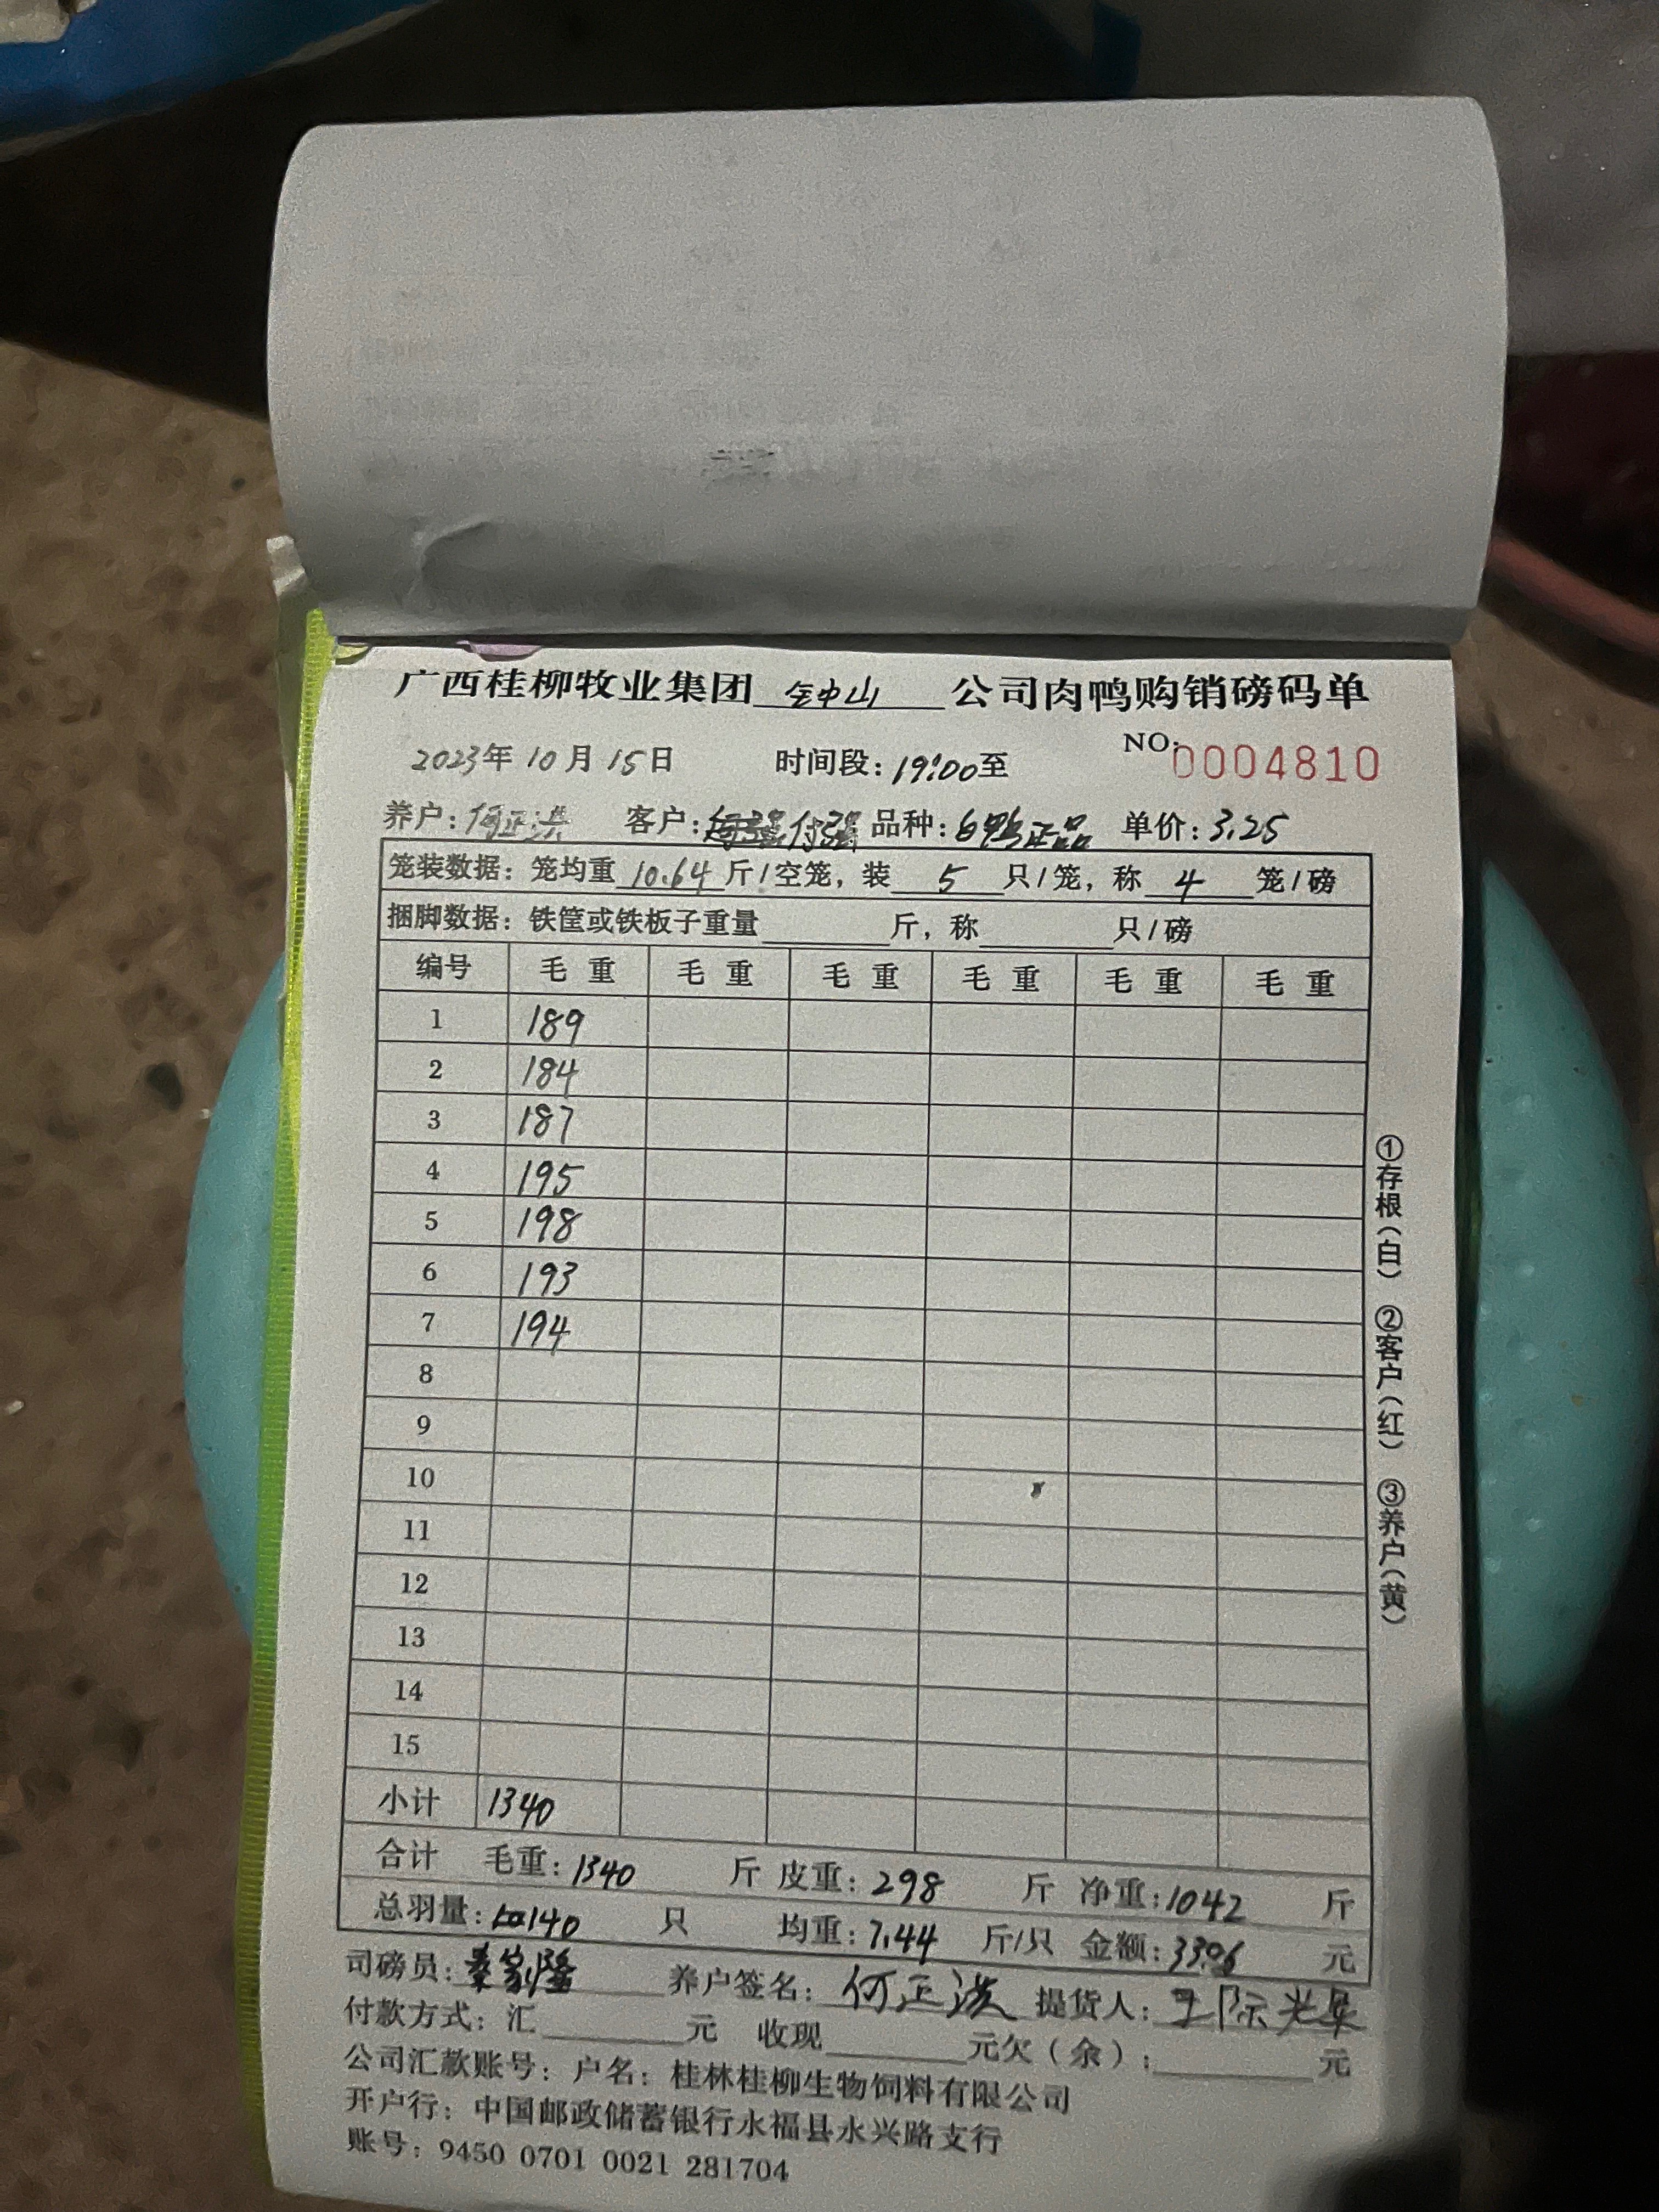 广西桂柳牧业集团 金中山 公司肉鸭购销磅码单
2023年 10月 15日 时间段：19:00至 NO:0004810
养户：何正洪 客户：付强 品种：6鸭正品 单价：3.25
笼装数据：笼均重 10.64 斤/空笼，装 5 只/笼，称 4 笼/磅
捆脚数据：铁筐或铁板子重量 斤，称 只/磅
编号 毛重 毛重 毛重 毛重 毛重 毛重
1 189
2 184
3 187
4 195
5 198
6 193
7 194
8
9
10
11
12
13
14
15
小计 1340
合计 毛重：1340 斤 皮重：298 斤 净重：1042 斤
总羽量：140 只 均重：7.44 斤/只 金额：3386 元
司磅员：秦家隆 养户签名：何正洪 提货人：
付款方式：汇 元 收现 元欠（余）： 元
公司汇款账号：户名：桂林桂柳生物饲料有限公司
开户行：中国邮政储蓄银行永福县永兴路支行
账号：9450 0701 0021 281704
①存根（白） ②客户（红） ③养户（黄）